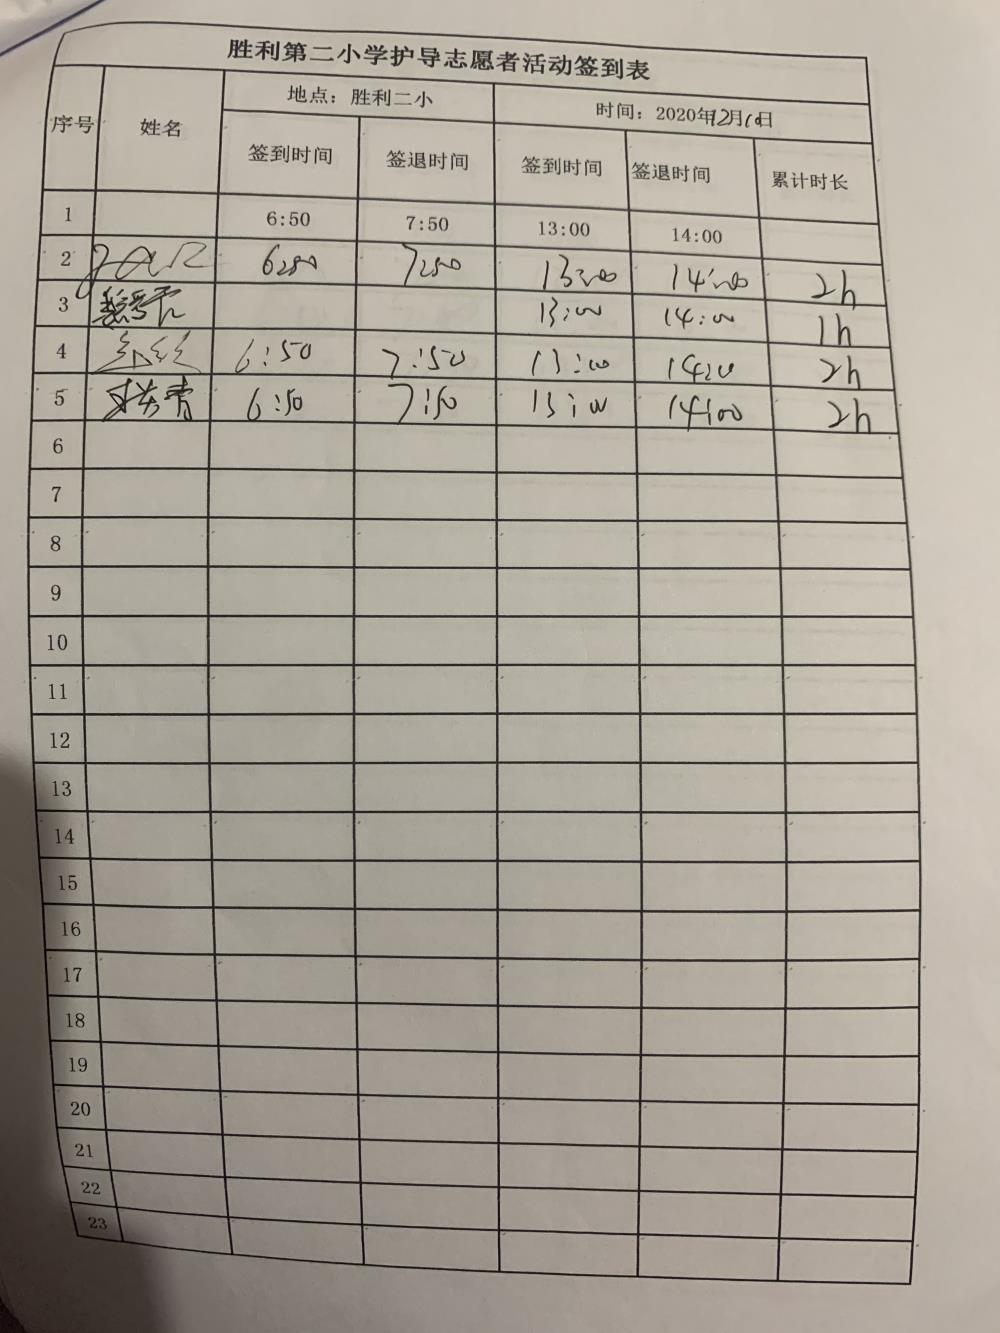 胜利第二小学护导志愿者活动签到表
序号 姓名 地点：胜利二小 时间：2020年12月10日
签到时间 签退时间 签到时间 签退时间 累计时长
1 6:50 7:50 13:00 14:00
2 6:50 7:50 13:00 14:00 2h
3 13:00 14:00 1h
4 6:50 7:50 13:00 14:00 2h
5 6:50 7:50 13:00 14:00 2h
6
7
8
9
10
11
12
13
14
15
16
17
18
19
20
21
22
23